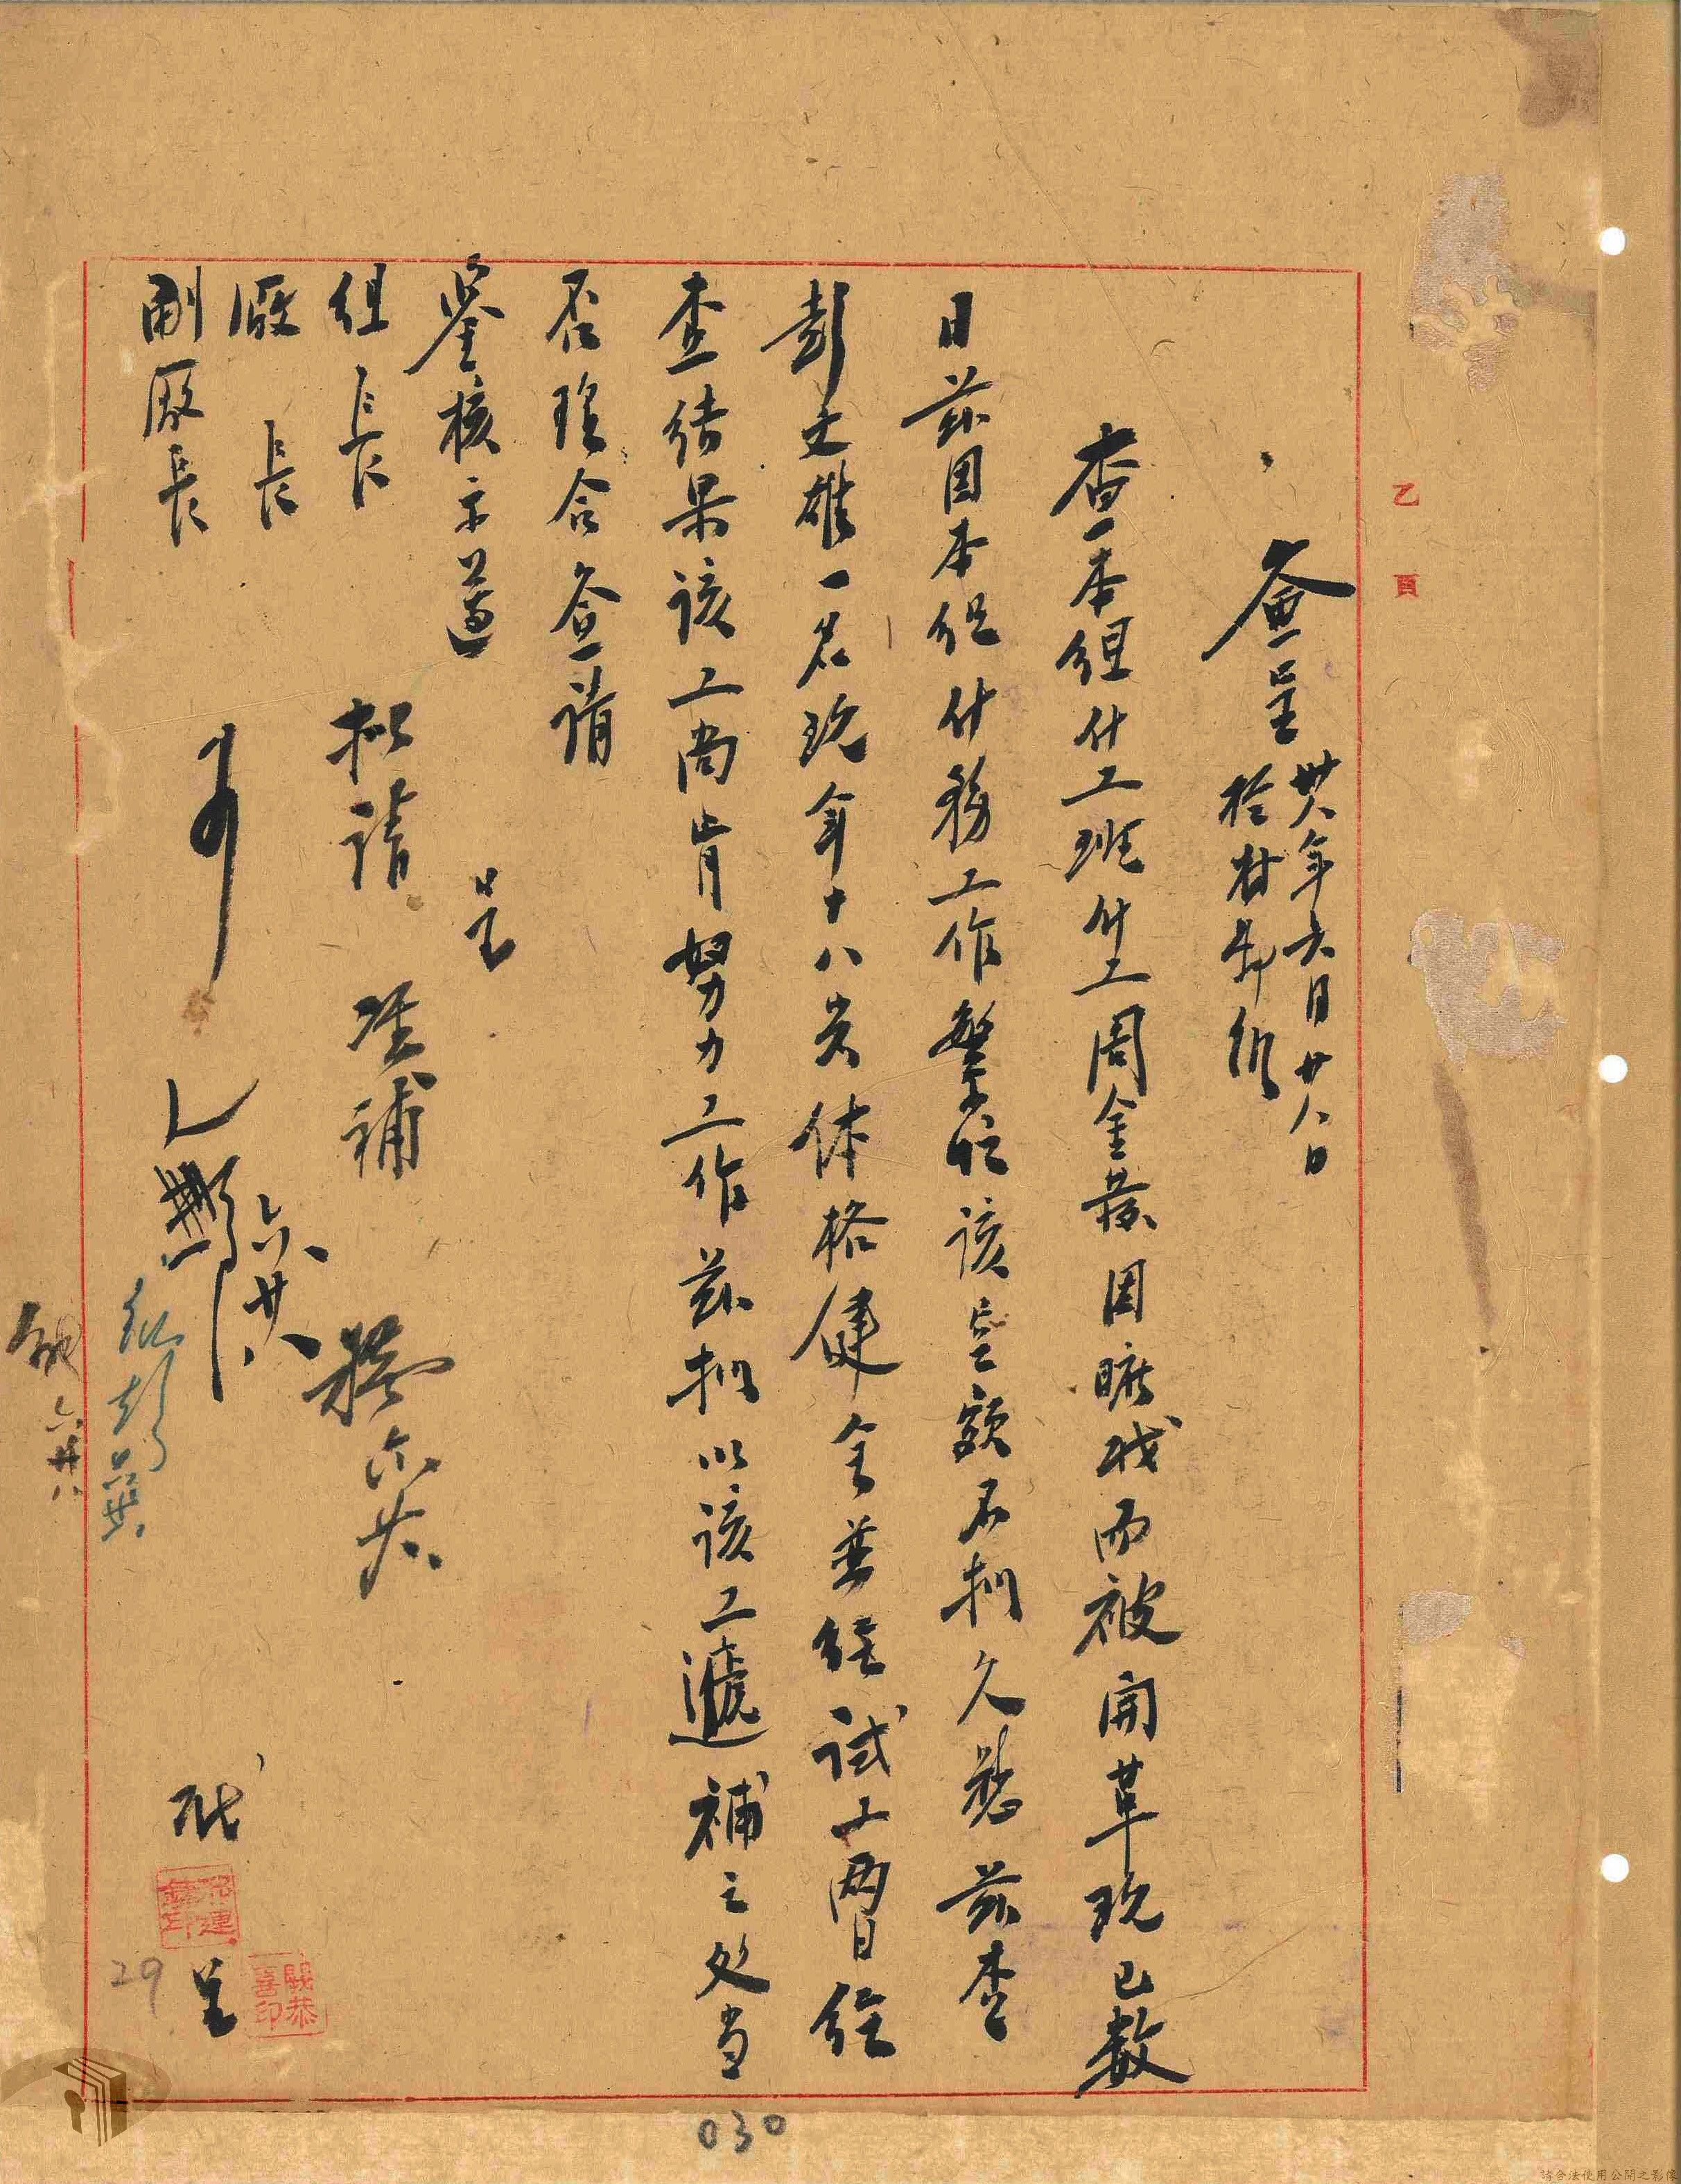 乙酉
簽呈
卅八年六月廿八日
於材料組
查本組什工班什工周金發因曠職而被開革現已數
日茲因本組什務工作繁忙該空額不擬久懸茲查
彭文雄一名現年十八岁体格健全並經試工兩日經
查结果該工尚肯努力工作茲擬以該工遞補之处当
否理合簽請
鑒核示遵
呈
組長
廠長
副廠長
擬請准補
六廿八
可
六廿八
六廿八
職
呈
29
030
請合法使用公開之影像